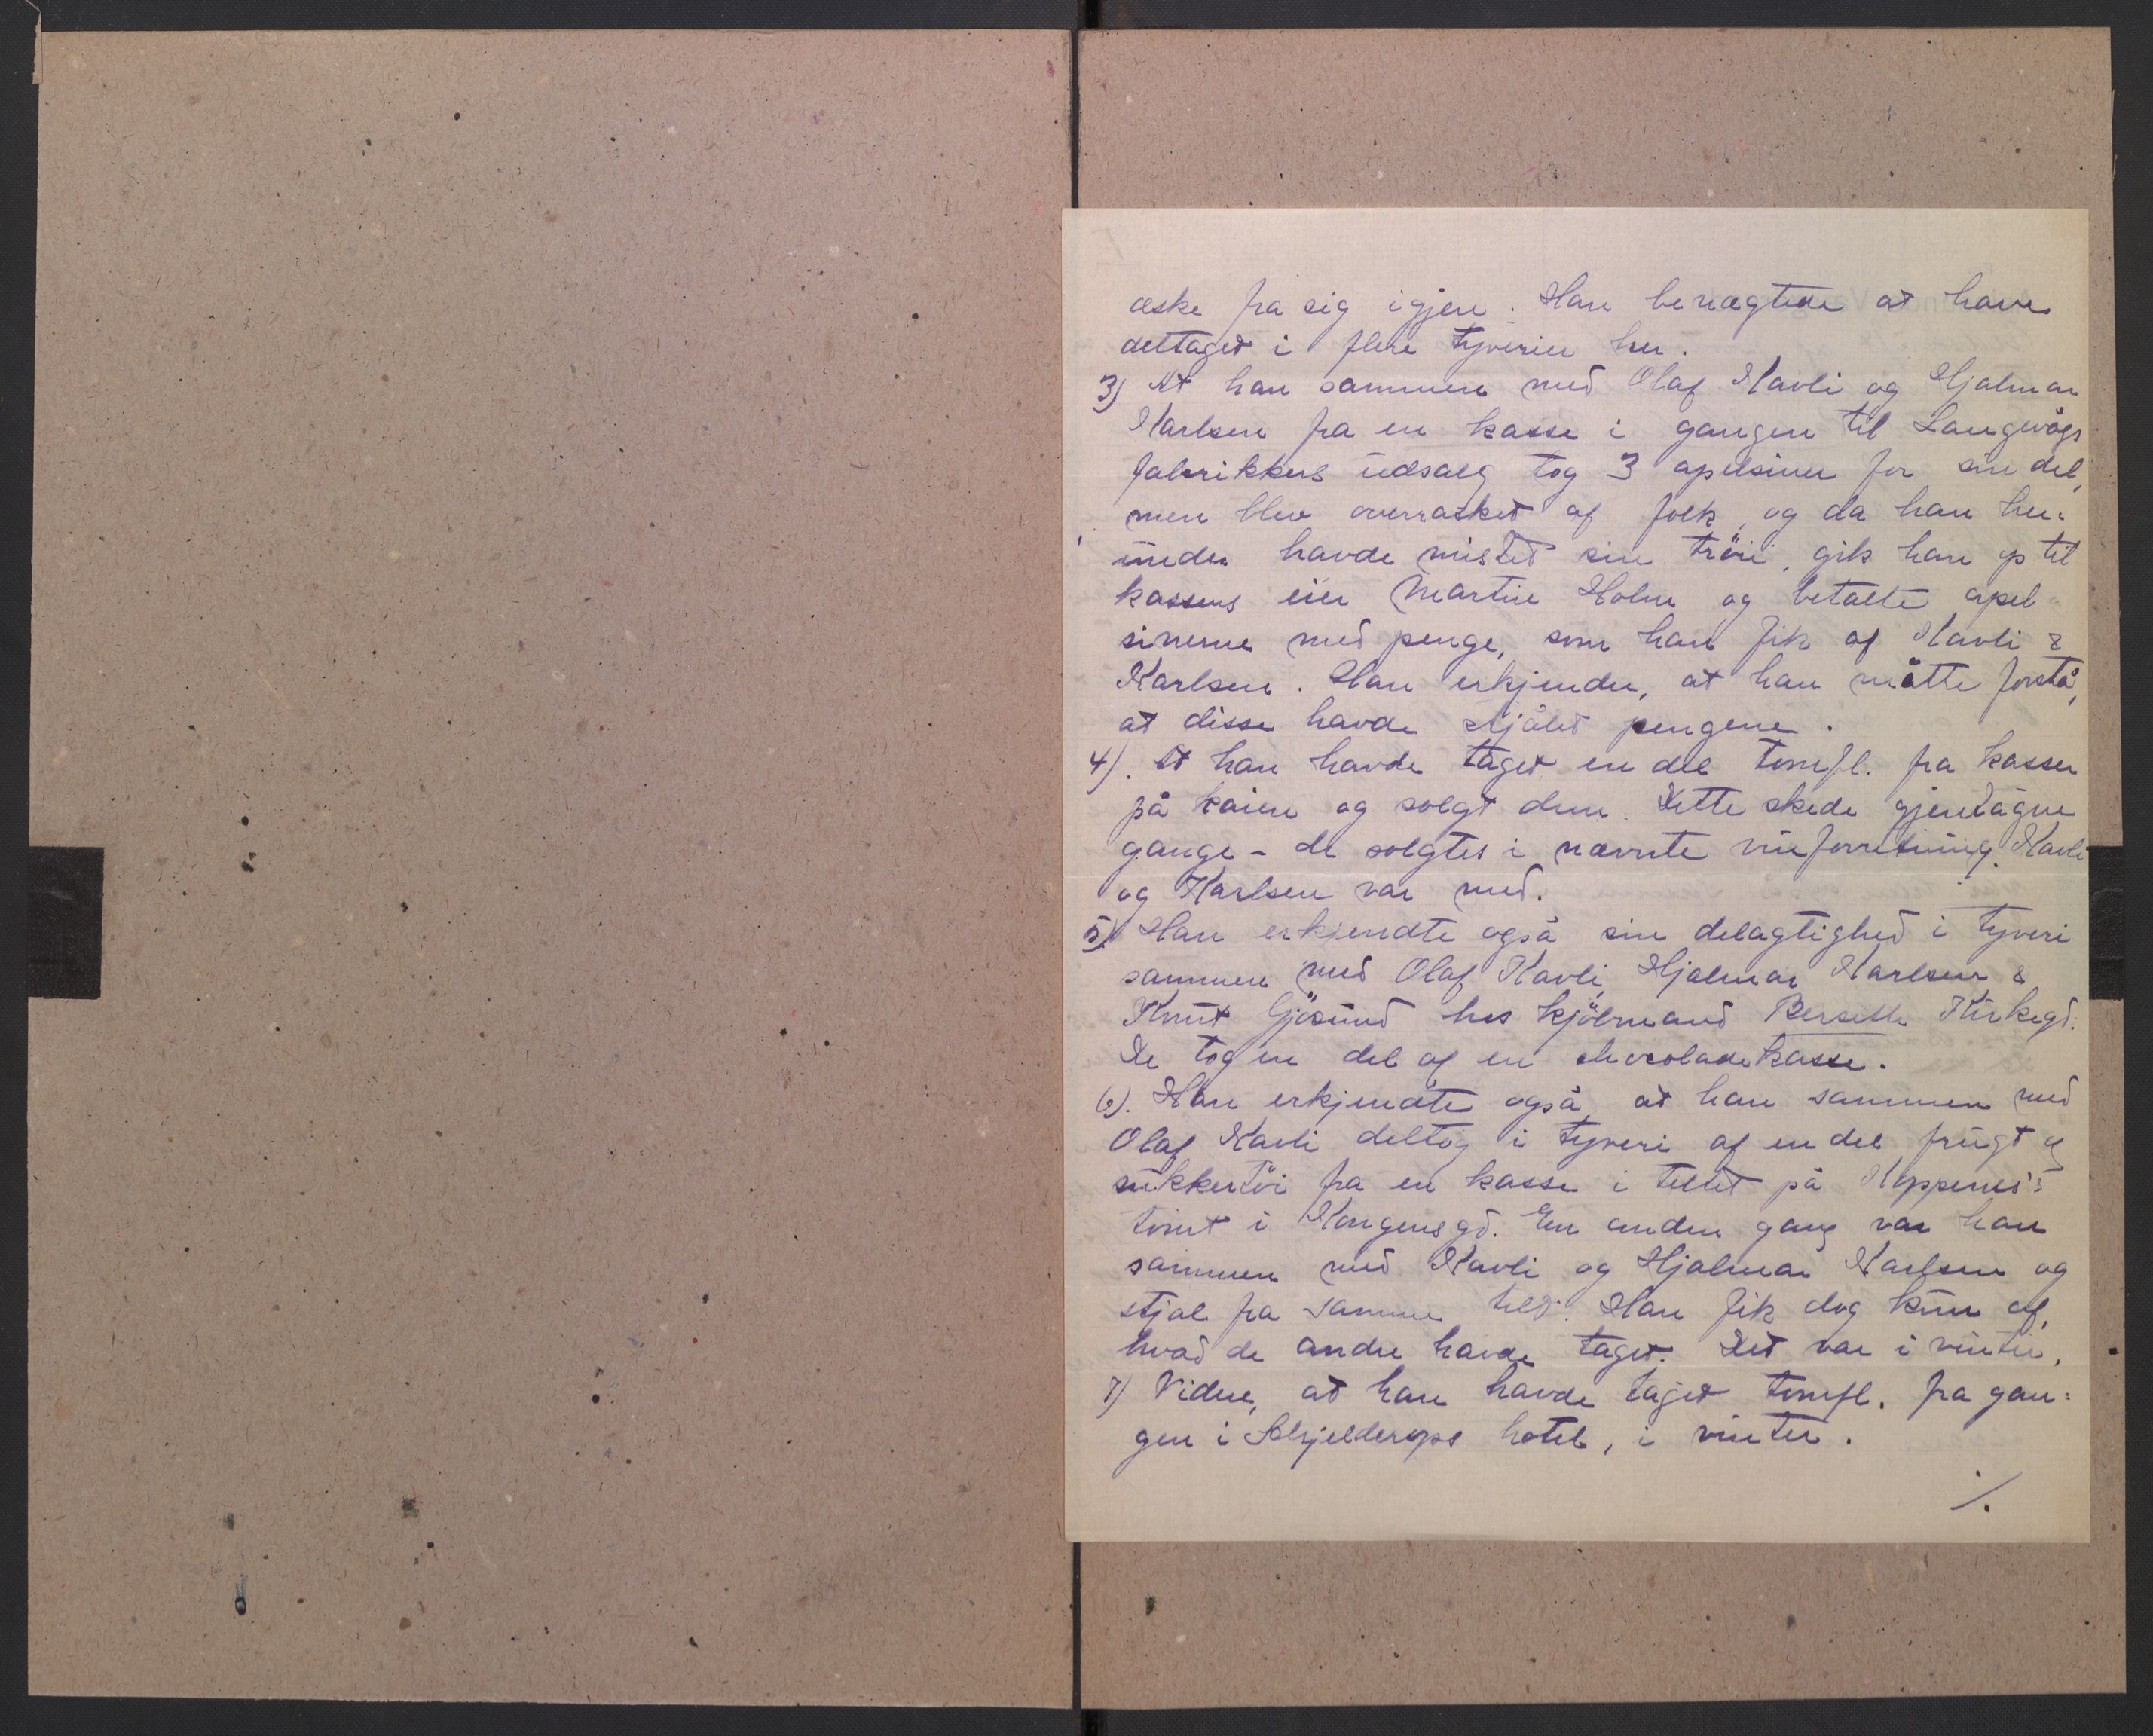 æske fra sig igjen. Han benægtede at have
deltaget i flere tyverier her.
3) At han sammen med Olaf Kavli og Hjalmar
Karlsen fra en kasse i gangen til Langevågs
fabrikkers udsalg tog 3 apelsiner for sin del,
men blev overrasket af folk, og da han her-
under havde mistet sin trøie, gik han op til
kassens eier Martin Holm og betalte apel
sinerne med penge, som han fik af Kavli &
Karlsen. Han erkjender, at han måtte forstå,
at disse havde stjålet pengene.
4). At han havde taget en del tomfl. fra kasser
på kaien og solgt dem. Dette skede gjentagne
gange - de solgtes i nævnte vinforretning. Kavli
og Karlsen var med.
5) Han erkjendte også sin delagtighed i tyveri
sammen med Olaf Kavli, Hjalmar Karlsen &
Knut Gjøsund hos kjøbmand Berseth Kirkegd.
De tog en del af en chocoladekasse.
6). Han erkjendte også, at han sammen med
Olaf Kavli deltog i tyveri af en del frugt og
sukkertøi fra en kasse i teltet på
tomt i Kongensgd. En anden gang var han
sammen med Kavli og Hjalmar Karlsen og
stjal fra samme telt. Han fik dog kun af,
hvad de andre havde taget. Det var i vinter.
7) Videre, at han havde taget tomfl. fra gan-
gen i Schjelderups hotel, i vinter.
./.